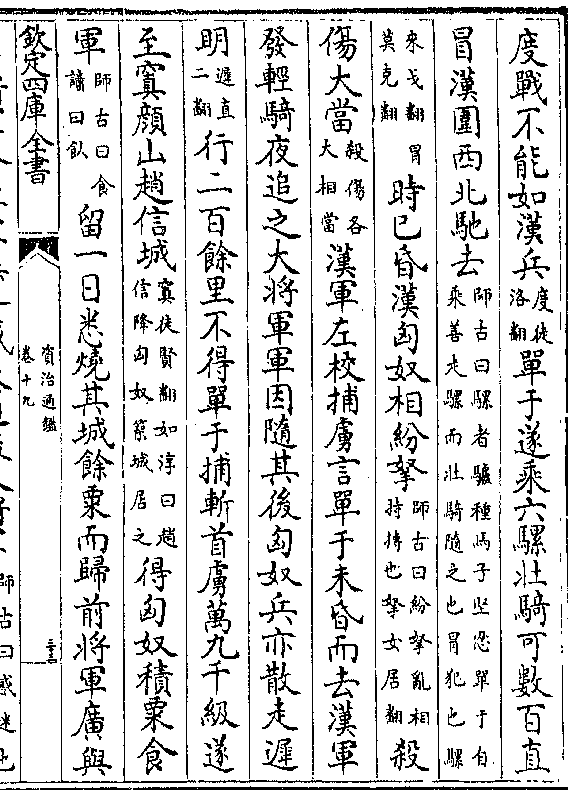 度戰不能如漢兵度徒洛翻單于遂乗六騾壯騎可數百直
冒漢圍西北馳去師古曰騾者驢種馬子堅忍單于自乘善走騾而壯騎隨之也冒犯也騾
來戈翻冒莫克翻時已昏漢匈奴相紛拏師古曰紛拏亂相持搏也拏女居翻殺
傷大當殺傷各大相當漢軍左校捕虜言單于未昏而去漢軍
發輕騎夜追之大將軍軍因隨其後匈奴兵亦散走遲
明遲直二翻行二百餘里不得單于捕斬首虜萬九千級遂
至窴顔山趙信城窴徒賢翻如淳曰趙信降匈奴築城居之得匈奴積粟食
軍師古曰食讀曰飤留一日悉燒其城餘粟而歸前將軍廣與
欽定四庫全書
資治通鑑
卷十九
三十三
師古曰惑迷也